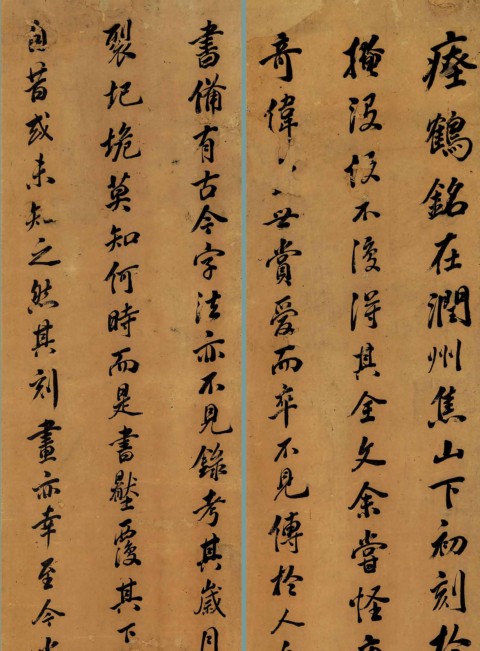 瘞鶴銘在潤州焦山下初刻於
掩没後不復得其全文余嘗怪
奇偉世賞愛而卒不見傳於人
書備有古今字法亦不見錄考其歲月
裂圮垝莫知何時而是書壓覆其下
自昔或未知之然其刻畫亦幸至今